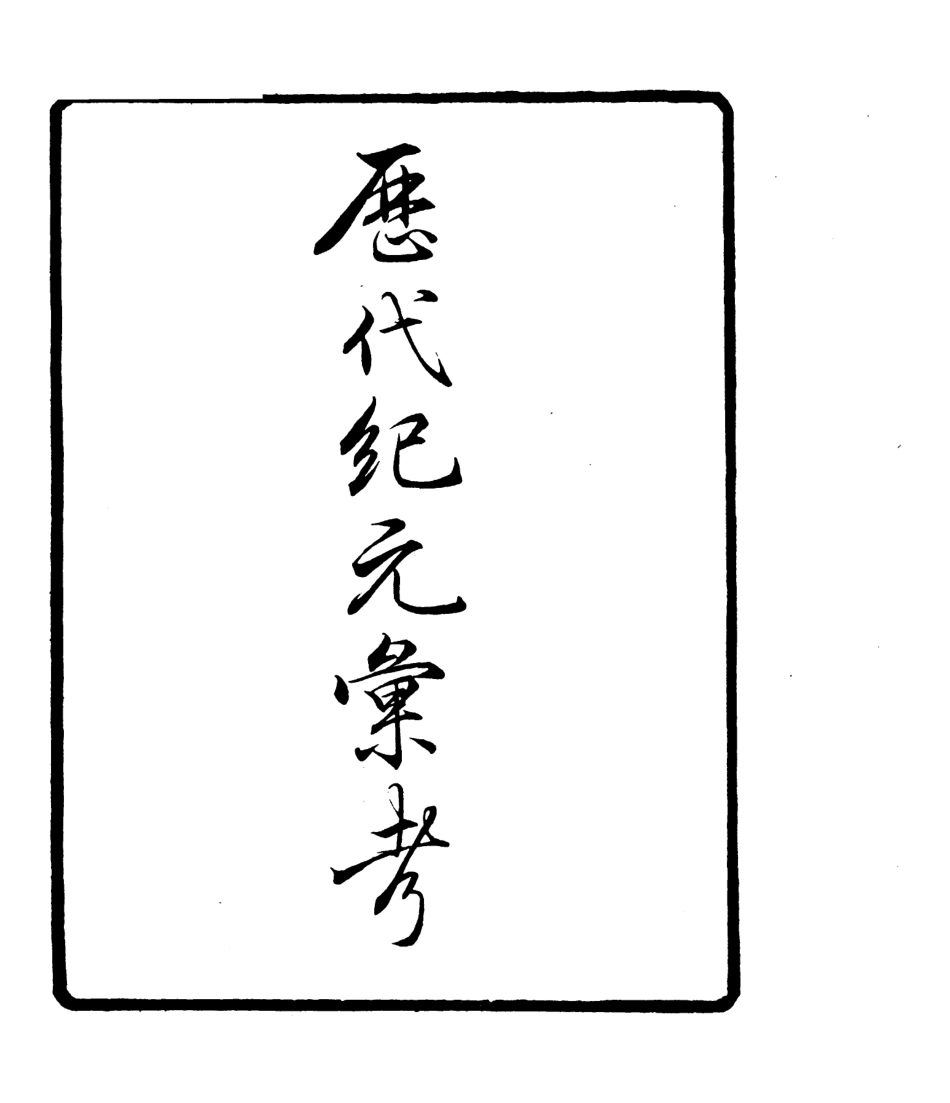 歴代紀元彙考